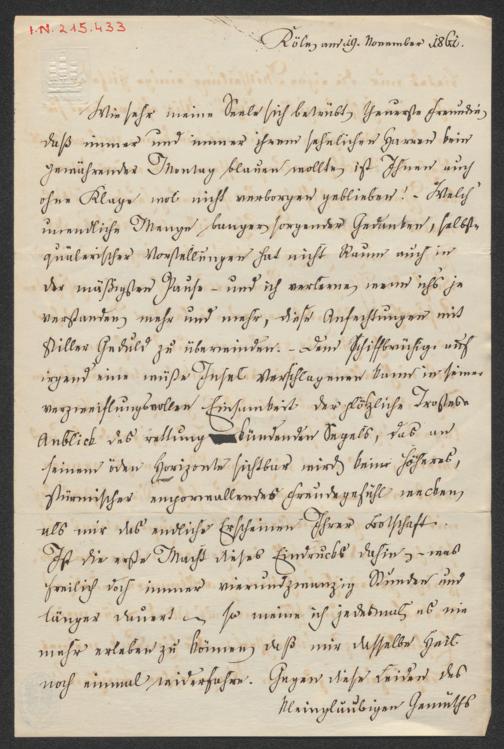 I.N. 215.433
Köln, am 19. November 1861.
Wie sehr meine Seele sich betrübt, theuerste Freundin,
daß immer und immer ihrem sehnlichen Harren kein
gewährender Montag blauen wollte, ist Ihnen auch
ohne Klage wol nicht verborgen geblieben! – Welch'
unendliche Menge banger, sorgender Gedanken, selbst-
quälerischer Vorstellungen hat nicht Raum auch in
der mäßigsten Pause – und ich verlerne, wenn ich's je
verstanden, mehr und mehr, diese Anfechtungen mit
stiller Geduld zu überwinden. – Dem Schiffbrüchig auf
irgend eine wüste Insel Verschlagenen kann in seiner
verzweiflungsvollen Einsamkeit der plötzliche Trostes-
Anblick des rettungkündenden Segels, das an
seinem öden Horizonte sichtbar wird, kein höheres,
stürmischer emporwallendes Freudegefühl wecken,
als mir das endliche Erscheinen Ihrer Botschaft.
Ist die erste Macht dieses Eindrucks dahin, – was
freilich doch immer vierundzwanzig Stunden und
länger dauert –, so meine ich jedesmal, es nie
mehr erleben zu können, daß mir dasselbe Heil
noch einmal widerfahre. Gegen diese Leiden des
kleingläubigen Gemüths